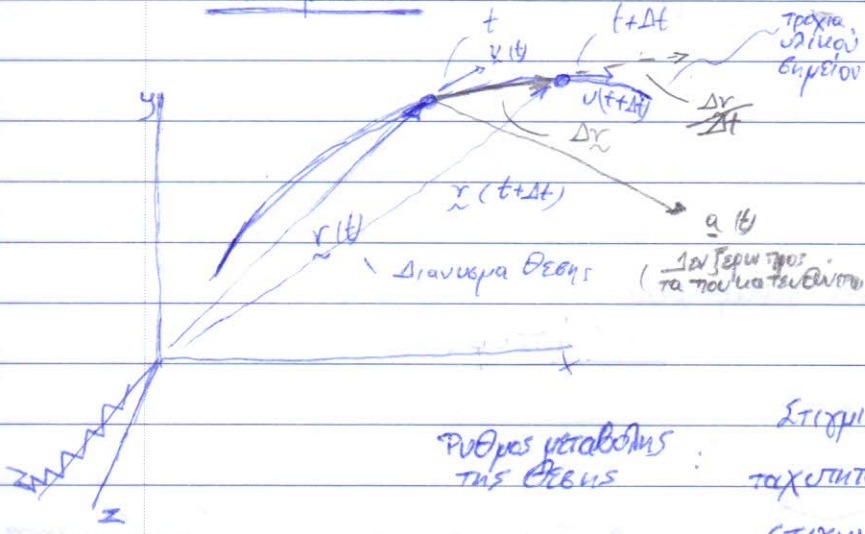 t
t+Δt
τροχιά
υλικού
σημείου
υ(t)
y
υ(t+Δt)
Δr
Δt
Δr
r(t+Δt)
r(t)
a(t)
Διανυσμα θεσης
(Δεν ξερω προς
τα που κατευθύνεται
x
Ρυθμος μεταβολης :
της θεσης
Στιγμι
ταχυτητ
z